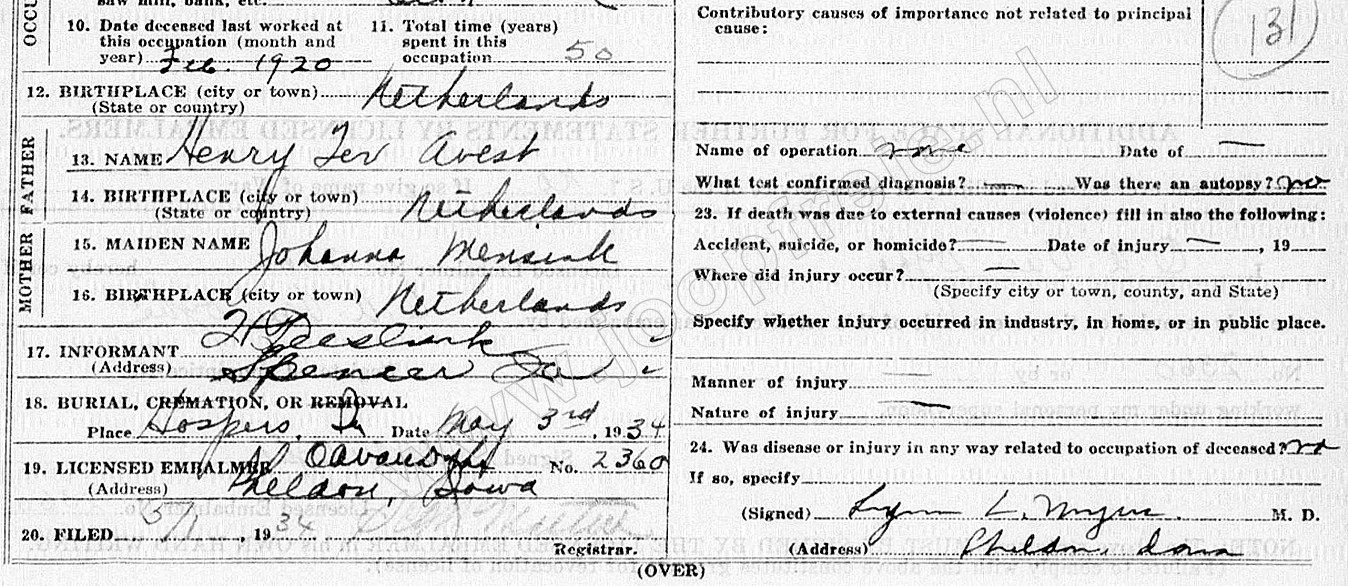 saw mill, bank, etc.
OCCU
10. Date deceased last worked at
this occupation (month and
year) Feb. 1920
11. Total time (years)
spent in this
occupation 50
12. BIRTHPLACE (city or town) Netherlands
(State or country)
FATHER
13. NAME Henry Ter Avest
14. BIRTHPLACE (city or town) Netherlands
(State or country)
MOTHER
15. MAIDEN NAME Johanna Mensink
16. BIRTHPLACE (city or town) Netherlands
17. INFORMANT
(Address) Spencer Iowa
18. BURIAL, CREMATION, OR REMOVAL
Place Hospers, Ia Date May 3rd, 1934
19. LICENSED EMBALMER No. 2360
(Address) Sheldon, Iowa
20. FILED 5/1, 1934
Registrar.
(OVER)
Contributory causes of importance not related to principal
cause:
131
Name of operation none Date of —
What test confirmed diagnosis? — Was there an autopsy? no
23. If death was due to external causes (violence) fill in also the following:
Accident, suicide, or homicide? — Date of injury —, 19
Where did injury occur? —
(Specify city or town, county, and State)
Specify whether injury occurred in industry, in home, or in public place.
Manner of injury
Nature of injury —
24. Was disease or injury in any way related to occupation of deceased? no
If so, specify
(Signed) Lynn L. Myers M. D.
(Address) Sheldon, Iowa
www.joopfrsje.nl